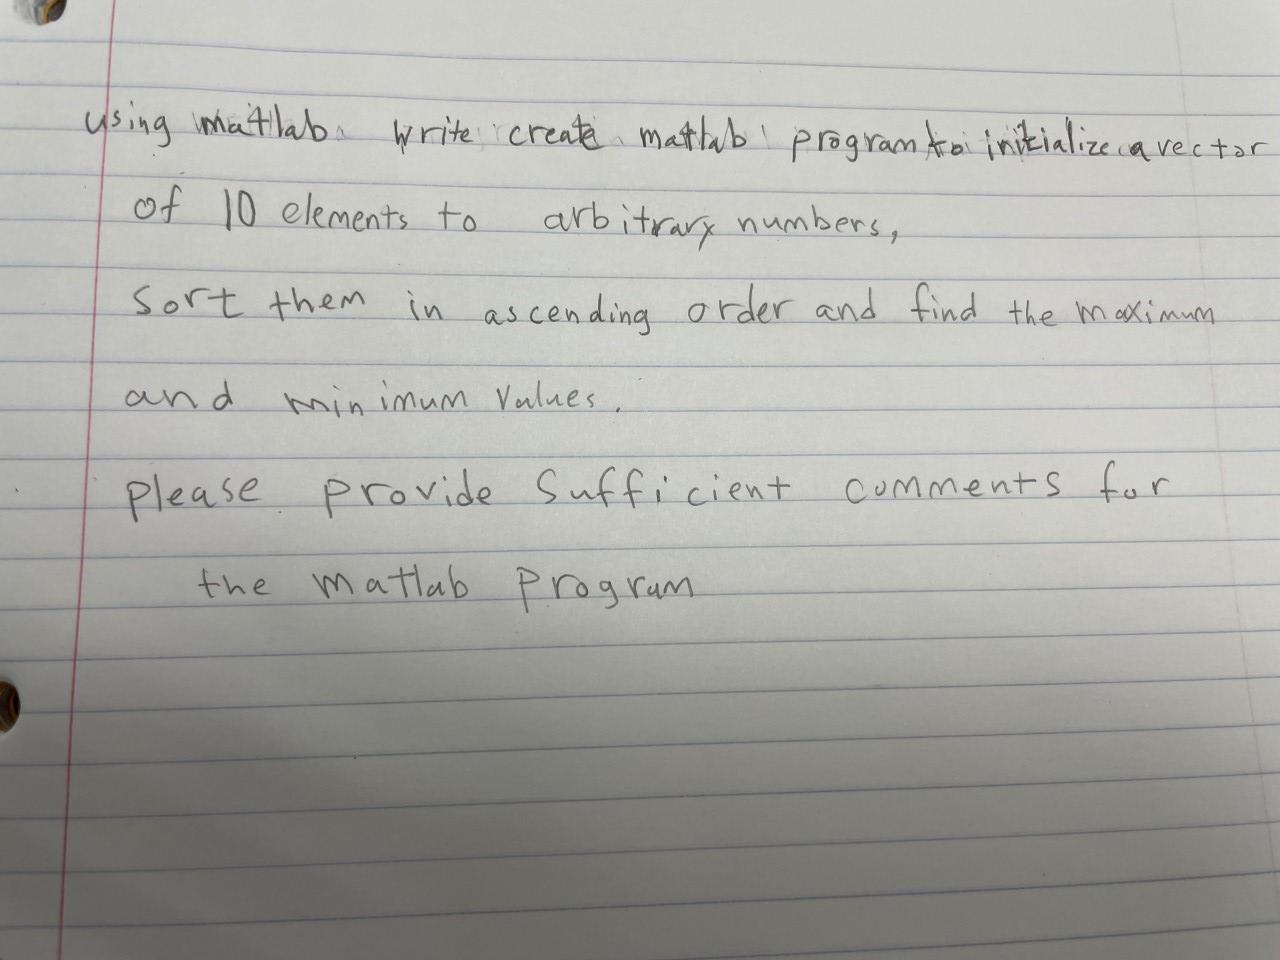 using matlab. write create matlab program to initialize a vector
of 10 elements to arbitrary numbers,
sort them in ascending order and find the maximum
and minimum values.
please provide sufficient comments for
the matlab program